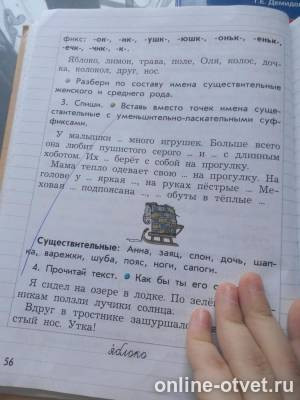 фикс: -ок-, -ик-, -ушк-, -юшк-, -оньк-, -еньк-,
-ечк-, -чик-, -к-.
Яблоко, лимон, трава, поле, Оля, колос, доч-
ка, колокол, друг, нос.
● Разбери по составу имена существительные
женского и среднего рода.
3. Спиши. ● Вставь вместо точек имена суще-
ствительные с уменьшительно-ласкательными суф-
фиксами.
У малышки ... много игрушек. Больше всего
она любит пушистого серого ... и ... с длинным
хоботом. Их ... берёт с собой на прогулку.
Мама тепло одевает свою ... на прогулку. На
голове у ... яркая ..., на руках пёстрые ... Ме-
ховая ... подпоясана ..., ... обуты в тёплые ...
Существительные: Анна, заяц, слон, дочь, шап-
ка, варежки, шуба, пояс, ноги, сапоги.
4. Прочитай текст. ● Как бы ты его
Я сидел на озере в лодке. По
никам ползали лучики солнца.
Вдруг в тростнике
стый нос. Утка!
56
яблоко
online-otvet.ru